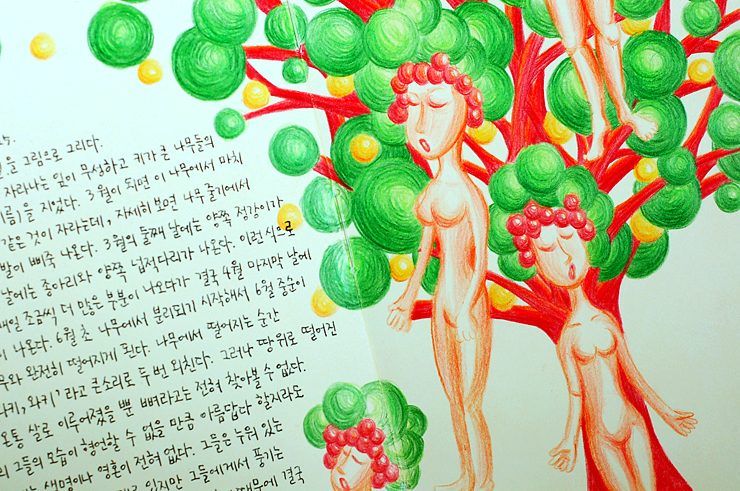 을 그림으로 그리다.
자라나는 잎이 무성하고 키가 큰 나무들의
름)을 지었다. 3월이 되면 이 나무에서 마치
같은 것이 자라는데, 자세히 보면 나무 줄기에서
발이 삐죽 나온다. 3월의 둘째 날에는 양쪽 정강이가
날에는 종아리와 양쪽 넓적다리가 나온다. 이런 식으로
매일 조금씩 더 많은 부분이 나오다가 결국 4월 마지막 날에
이 나온다. 6월 초 나무에서 분리되기 시작해서 6월 중순이
무와 완전히 떨어지게 된다. 나무에서 떨어지는 순간
와키' 라고 큰소리로 두 번 외친다. 그러나 땅 위로 떨어진
온통 살로 이루어졌을 뿐 뼈라고는 전혀 찾아볼 수 없다.
의 그들의 모습이 형언할 수 없을 만큼 아름답다 할지라도
생명이나 영혼이 전혀 없다. 그들은 누워 있는
있지만 그들에게서 풍기는
때문에 결국